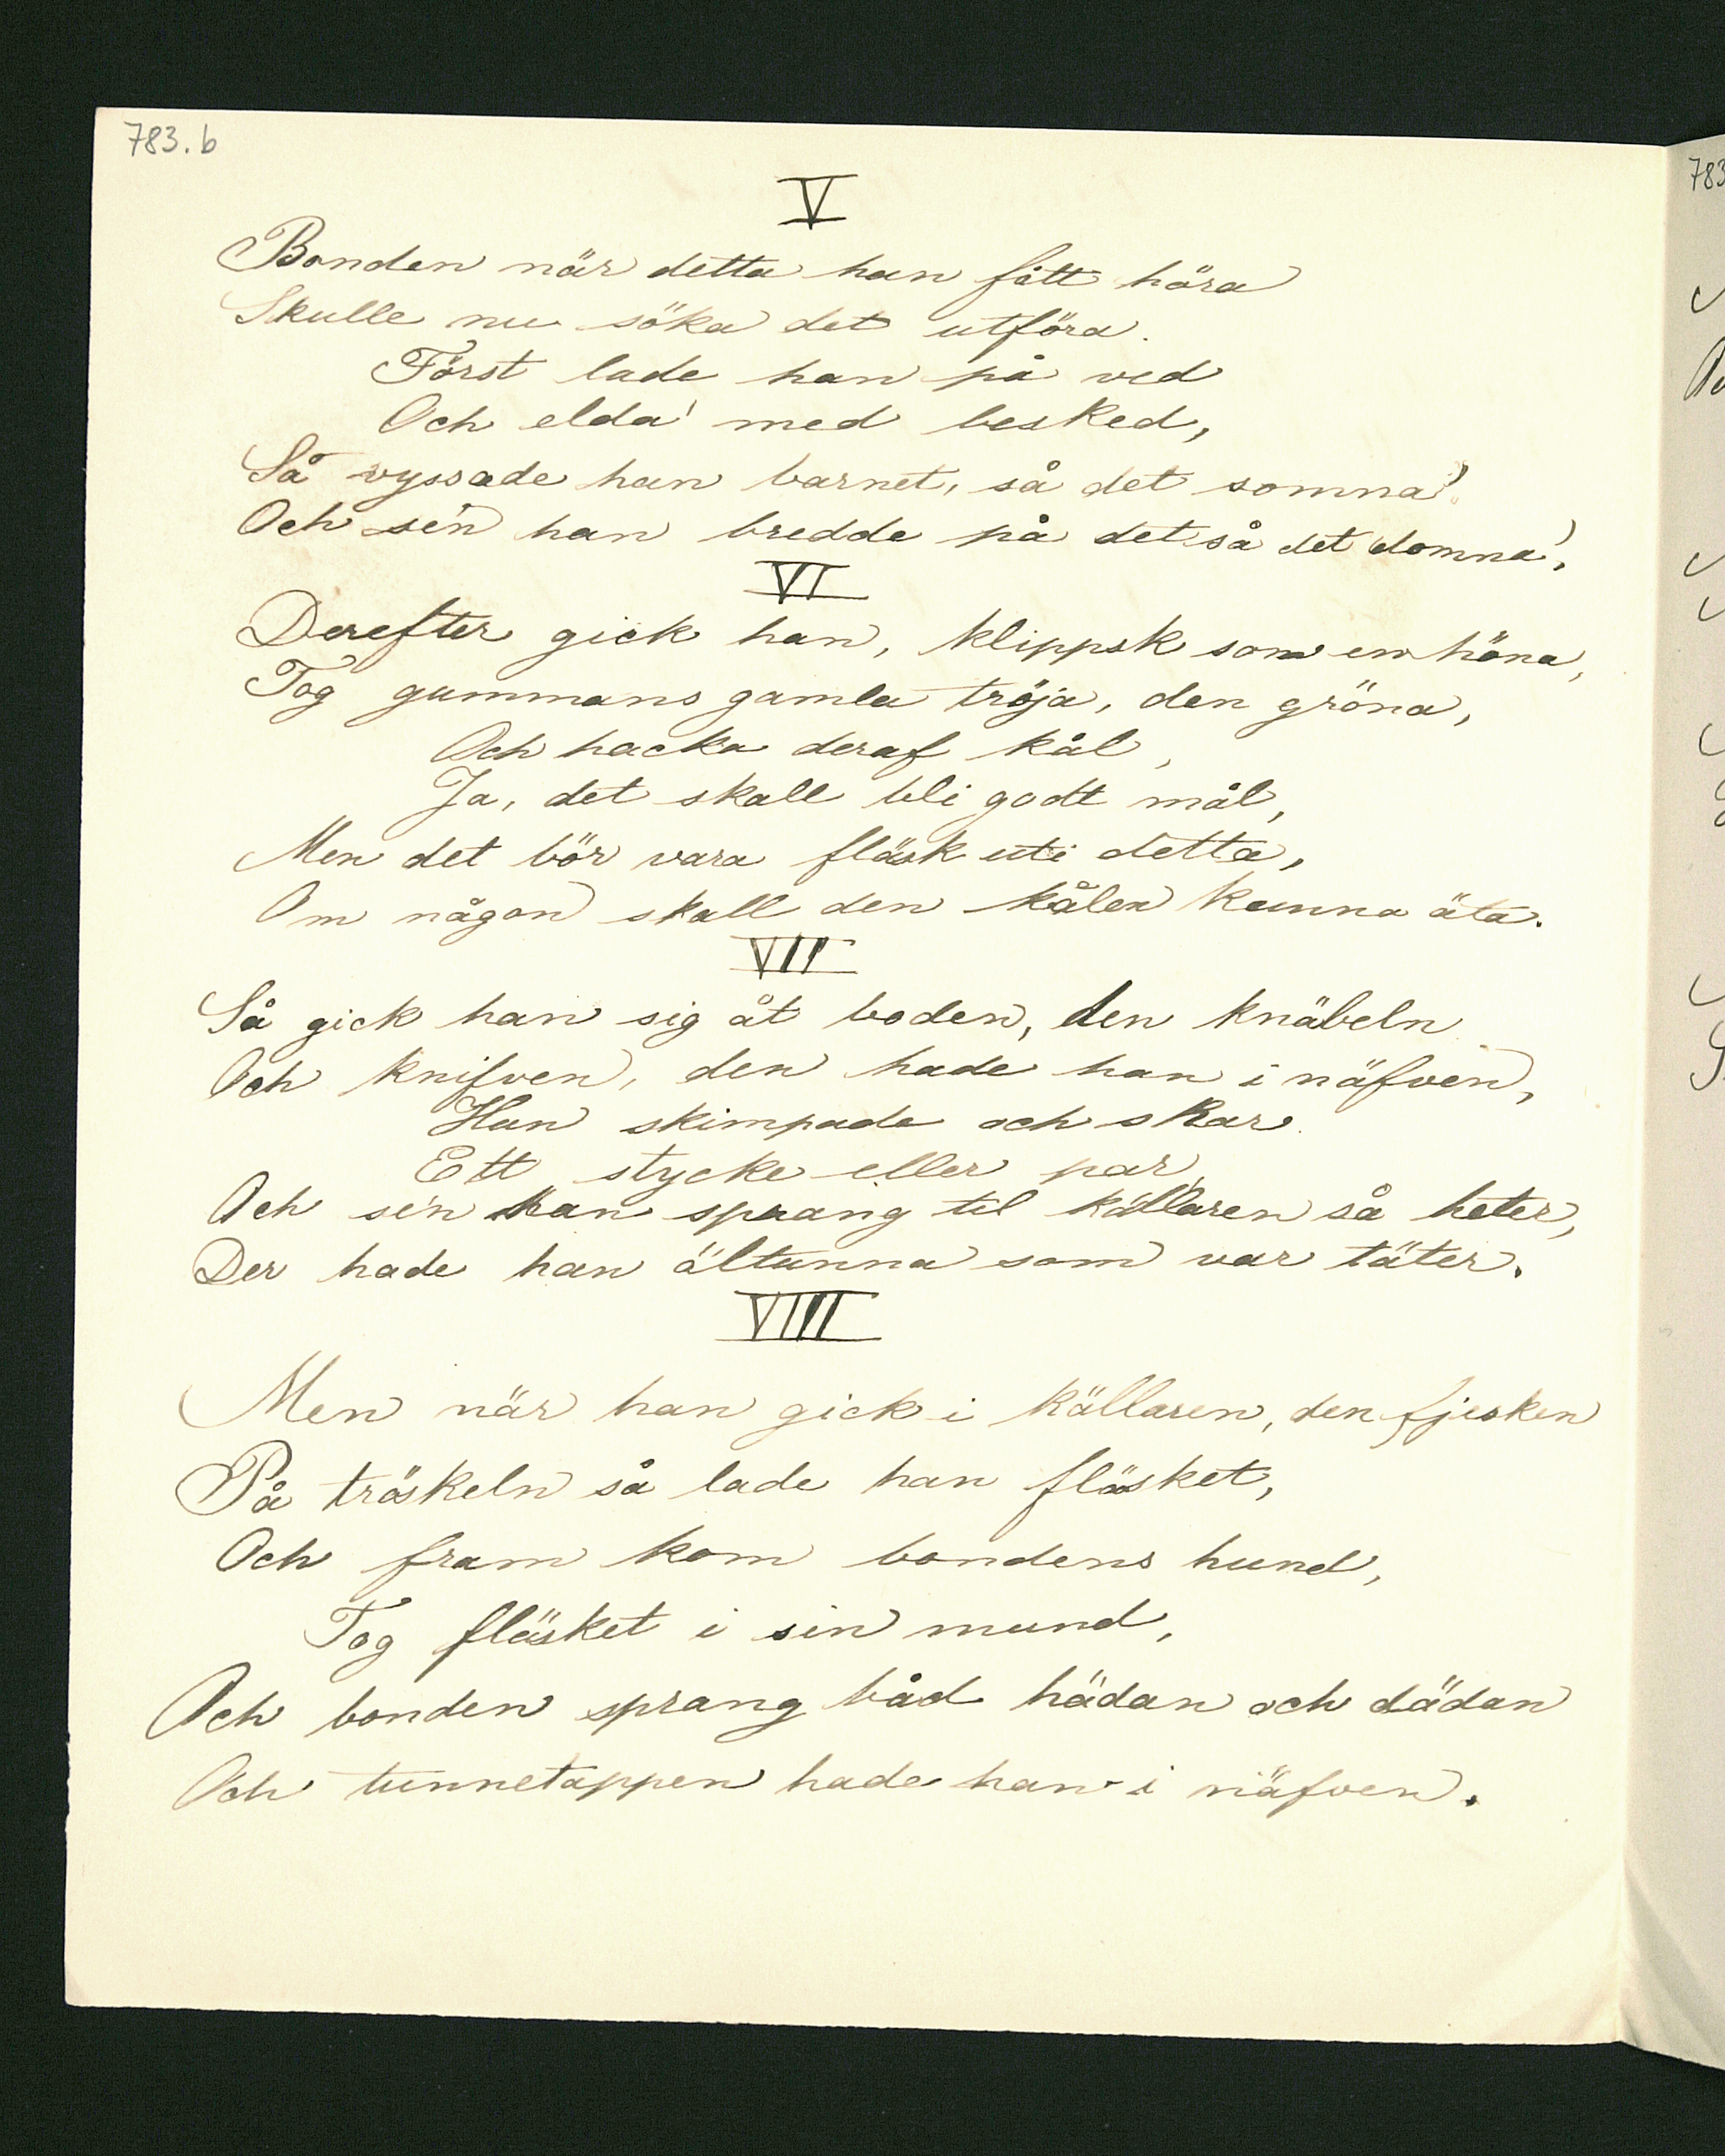 783.b
V
Bonden när detta han fått höra
Skulle nu söka det utföra.
Först lade han på ved
Och elda' med besked,
Så vyssade han barnet, så det somna'.
Och se'n han bredde på det så det domna',
VI
Derefter gick han, klippsk som en höna,
Tog gummans gamla tröja, den gröna,
Och hacka deraf kål,
Ja, det skall bli godt mål,
Men det bör vara fläsk uti detta,
Om någon skall den kålen kunna äta.
VII
Så gick han sig åt boden, den knäbeln
Och knifven, den hade han i näfven,
Han skimpade och skar
Ett stycke eller par,
Och se'n han sprang til källaren så heter,
Der hade han öltunna som var täter.
VIIII
Men när han gick i källaren, den fjesken
På tröskeln så lade han fläsket,
Och fram kom bondens hund,
Tog fläsket i sin mund,
Och bonden sprang båd hädan och dädan
Och tunnetappen hade han i näfven.
783